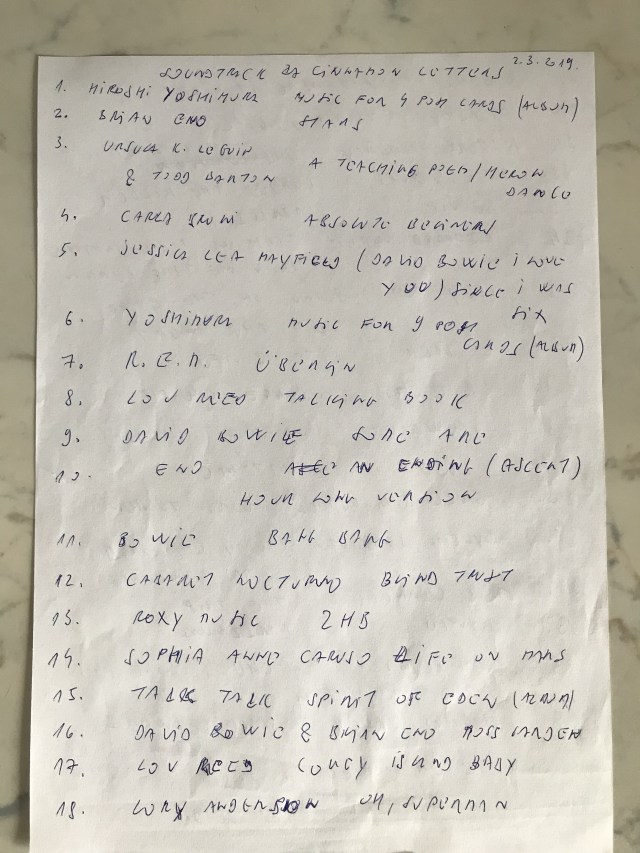 SOUNDTRACK ZA CINNAMON LETTERS 2.3.2019.
1. HIROSHI YOSHIMURA MUSIC FOR 9 POST CARDS (ALBUM)
2. BRIAN ENO STARS
3. URSULA K. LEGUIN
& TODD BARTON A TEACHING POEM / HERON
DANCE
4. CARLA BRUNI ABSOLUTE BEGINERS
5. JESSICA LEA MAYFIELD (DAVID BOWIE I LOVE
YOU) SINCE I WAS
SIX
6. YOSHIMURA MUSIC FOR 9 POST
CARDS (ALBUM)
7. R.E.M. ÜBERLIN
8. LOU REED TALKING BOOK
9. DAVID BOWIE SOME ARE
10. ENO AN ENDING (ASCENT)
HOUR LONG VERSION
11. BOWIE BANG BANG
12. CABARET NOCTURNO BLIND TRUST
13. ROXY MUSIC 2HB
14. SOPHIA ANNE CARUSO LIFE ON MARS
15. TALK TALK SPIRIT OF EDEN (ALBUM)
16. DAVID BOWIE & BRIAN ENO MOSS GARDEN
17. LOU REED CONEY ISLAND BABY
18. LORY ANDERSON OH, SUPERMAN